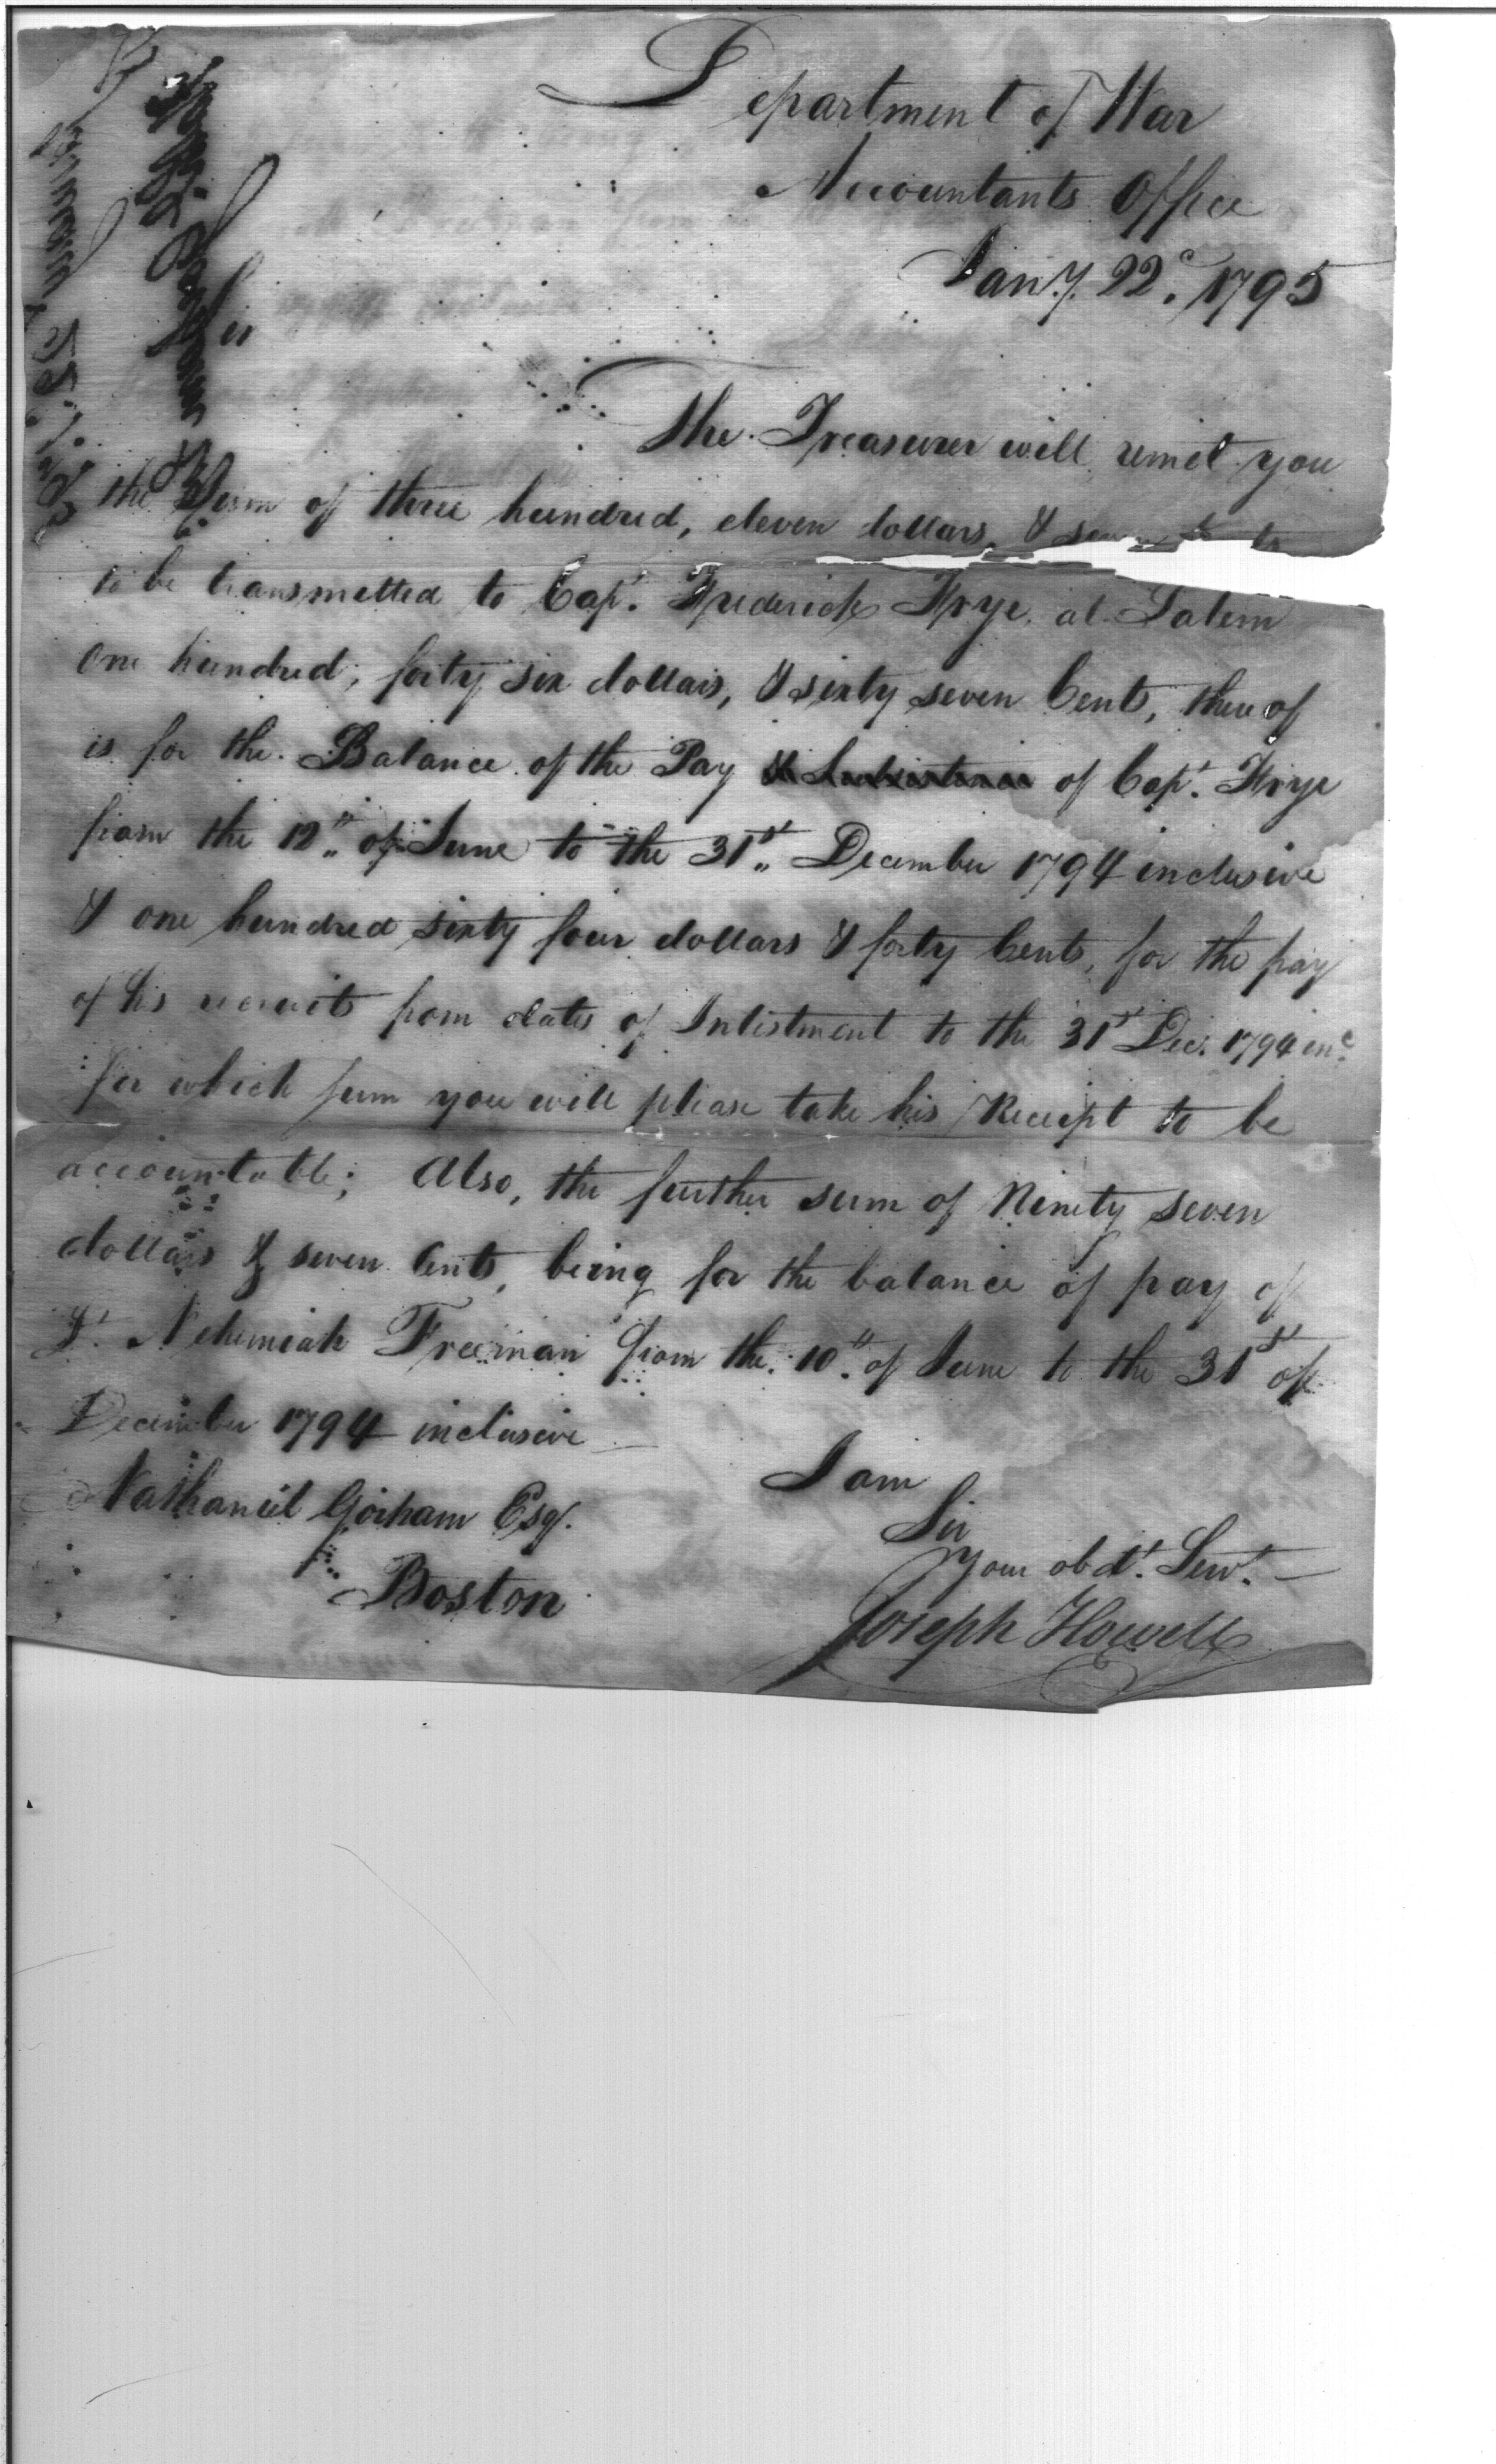 Department of War
Accountants Office
Jany. 22d. 1795
Sir
The Treasurer will remit you
the Sum of three hundred, eleven dollars, & seven
to be transmitted to Capt. Frederick Frye, at Salem
One hundred, forty six dollars, & sixty seven Cents, there of
is for the Balance of the Pay & Subsistence of Capt. Frye
from the 12th of June to the 31st December 1794 inclusive
& one hundred sixty four dollars & forty Cents, for the pay
of his recruits from dates of Inlistment to the 31st Dec. 1794 inc.
for which sum you will please take his Receipt to be
accountable; Also, the further sum of Ninety seven
dollars & seven Cents, being for the balance of pay of
Lt. Nehemiah Freeman from the 10th of June to the 31st of
December 1794 inclusive
I am
Sir
Your obdt. Servt.
Joseph Howell
Nathaniel Gorham Esq.
Boston